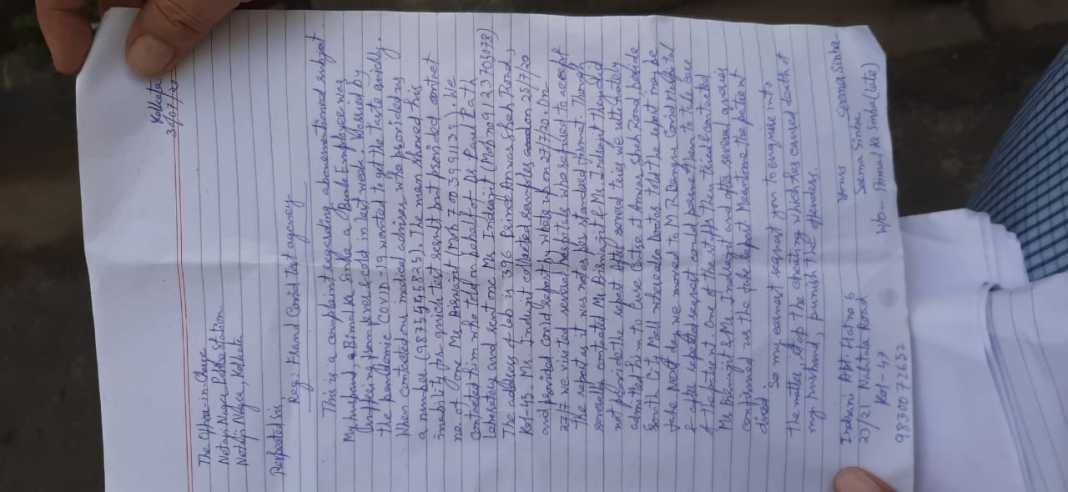 Kolkata
The Officer in Charge
Netaji Nagar Police Station
Netaji Nagar, Kolkata
Respected Sir
Reg: Fraud Covid test agency
This is a complaint regarding abovementioned subject
My husband, Bimal Ks Sinha a Bank Employee was
suffering from fever & cold in last week. Worried by
the pandemic COVID-19 wanted to get the taste quickly.
When contacted our medical adviser who provided us
a number The man showed this
inability for quick test result but provided contact
no. of one Mr Biswajit (Mob He
contacted him he told on behalf of Dr Paul Path
Laboratory and sent one Mr Indrajit (Mob no
The address of lab is 396 Prince Anwar Shah Road,
Kol-45. Mr. Indrajit collected samples on 25/7/20
and provided covid report by whats up on 27/7/20. On
27/7 we visited several hospitals who refused to accept
the report as it was not as per standard format. Though
several contacted Mr Biswajit & Mr Indrajit they did
not provide the report. After several tries we ultimately
admitted him to Care at Anwar Shah Road beside
South City Mall where doctor told the report may be
the next day we moved to M R Bangur Covid Hospital
& after repeated request could permit him to take care
of the patient. One of the staffs then tried contacted
Mr Biswajit & Mr Indrajit and after several queries
confirmed us the fake report. Meantime the patient
died
So my earnest request you to enquire into
the matter & stop the cheating which has caused death of
my husband, punish the offenders
Indrani Apt Flat no 6
Yours
Seema Sinha
27/21 Naktala Road
Seema Sinha
Kol-47
W/o - Bimal Ks Sinha (late)
98300 72632